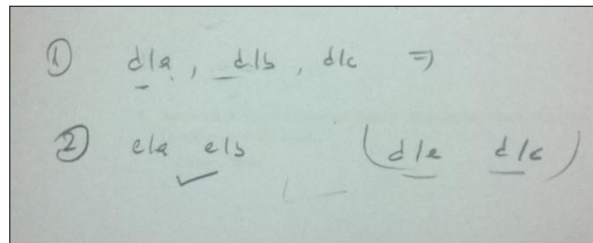 ① d|a, d|b, d|c ⇒
② e|a e|b (d|e d|c)